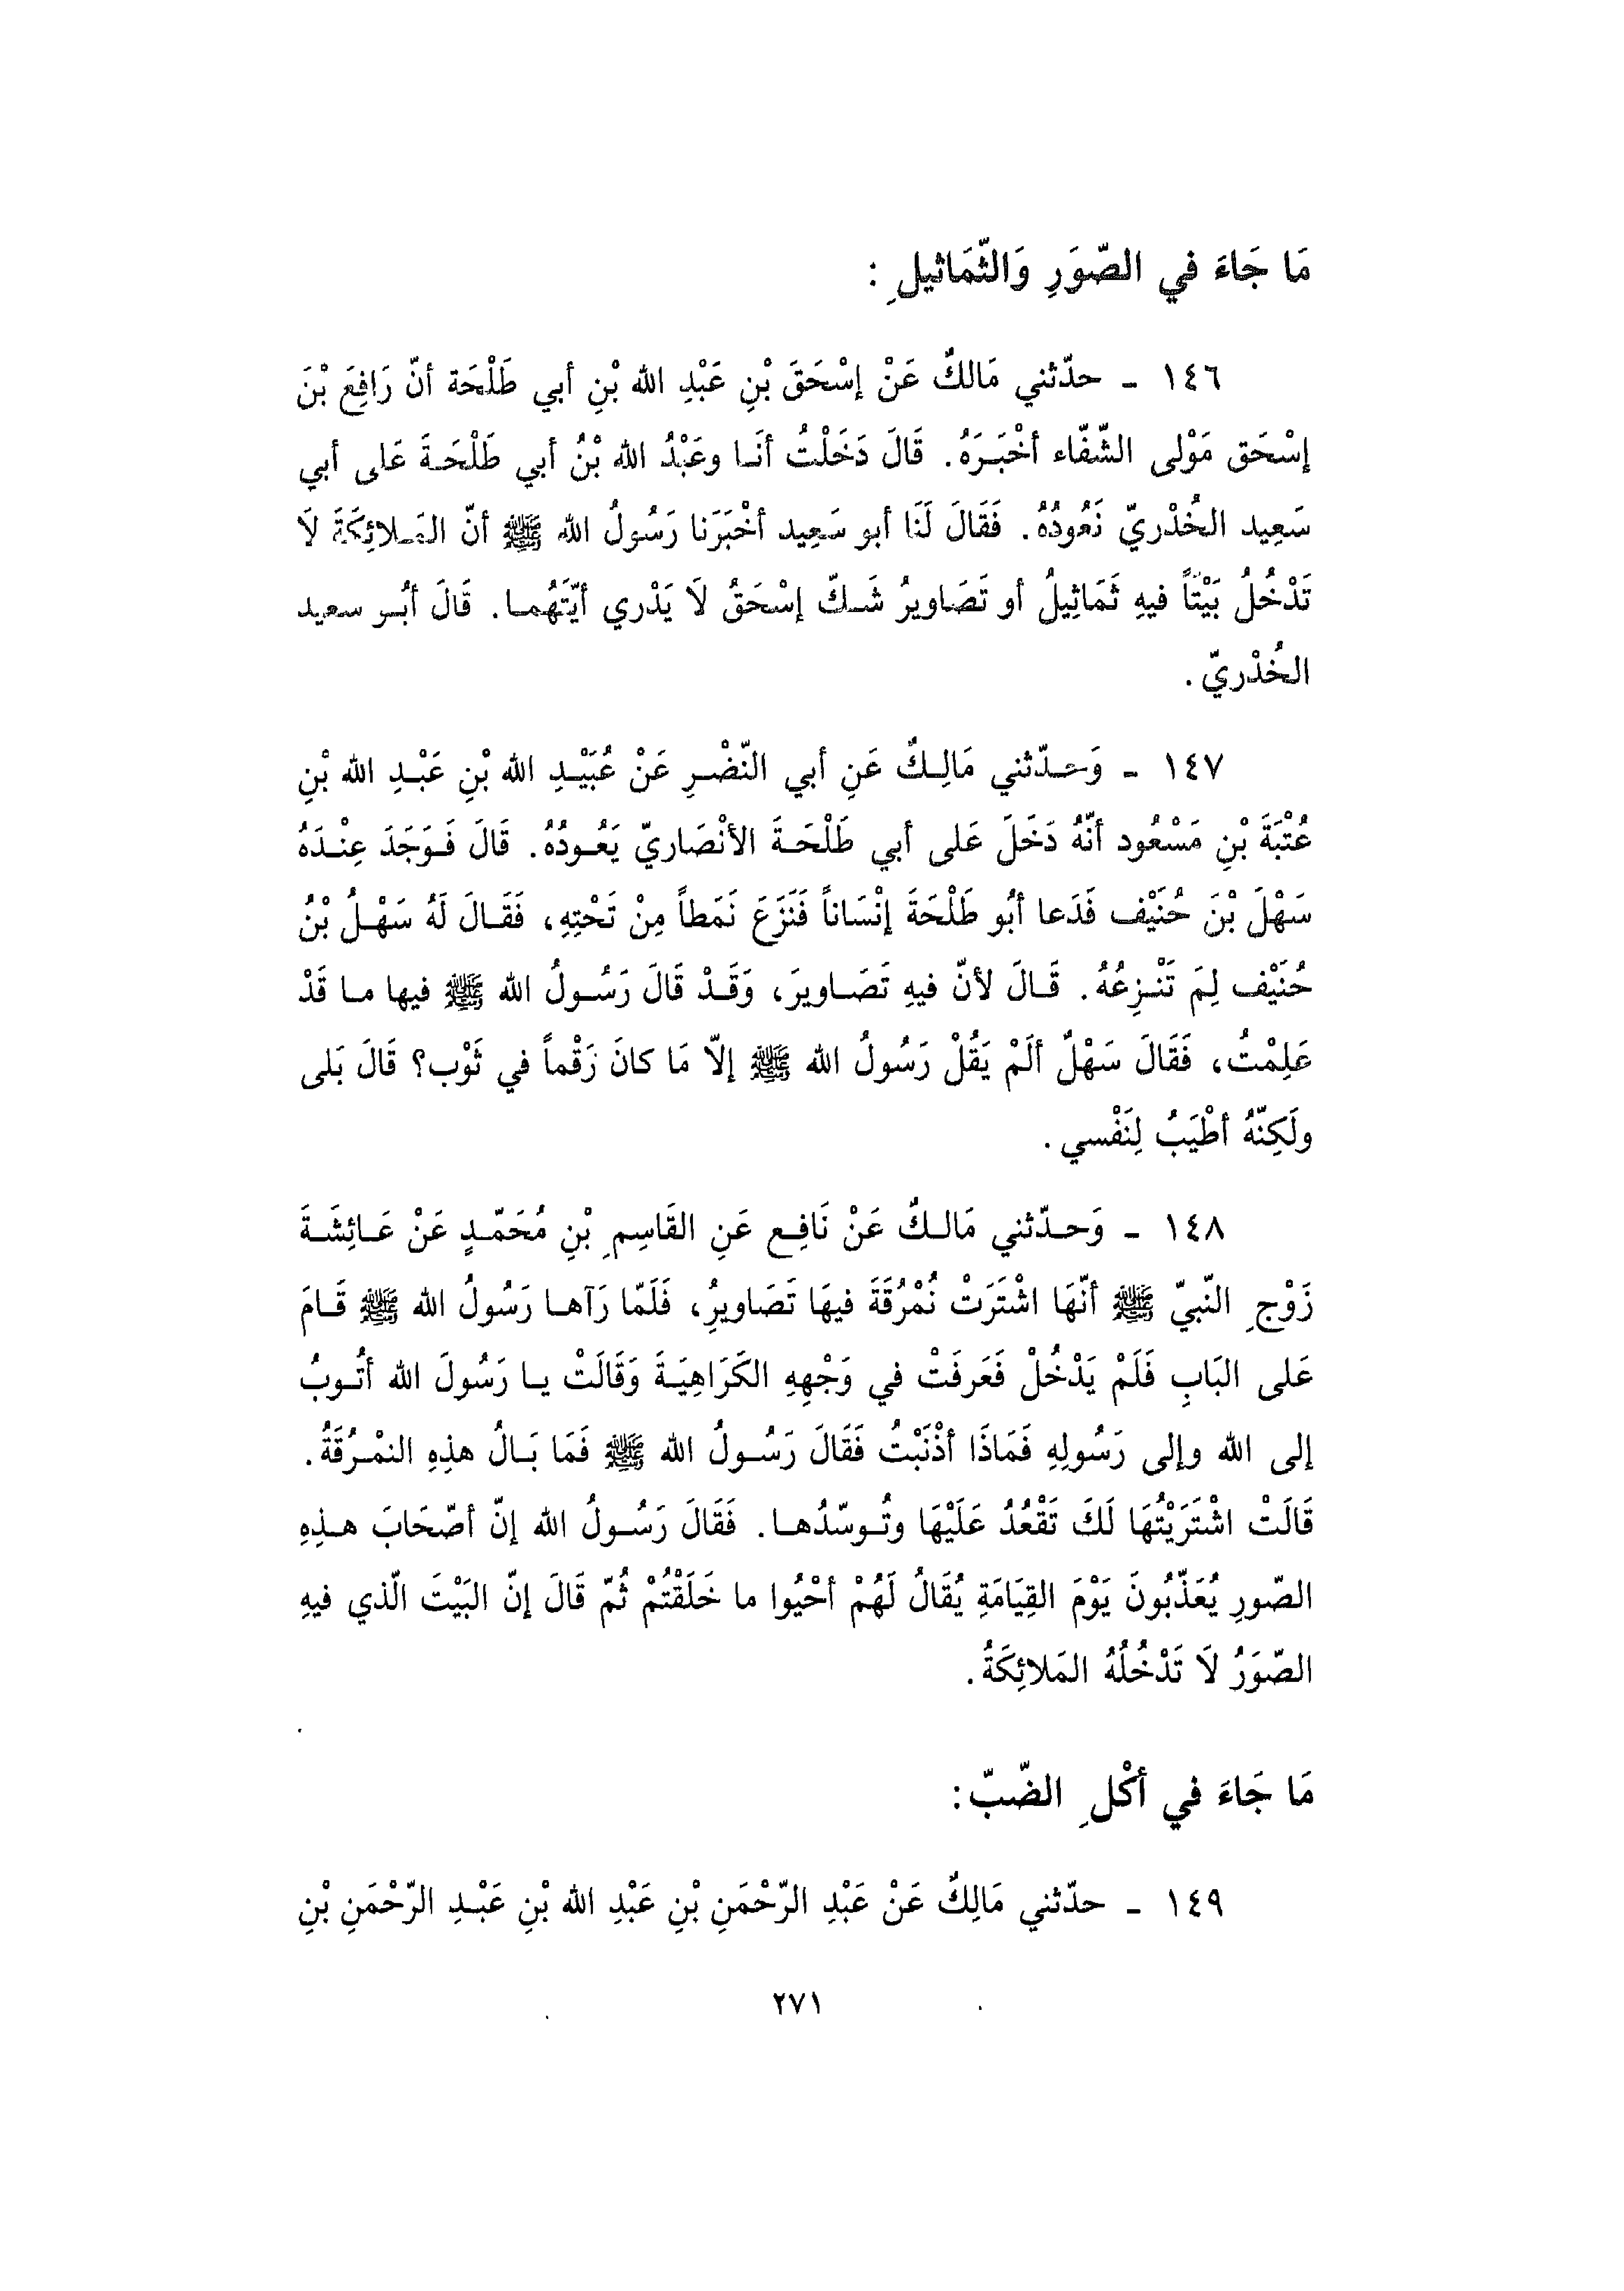 مَا جَاءَ في الصّوَرِ وَالثّمَاثيلِ :
١٤٦ - حدّثني مَالكٌ عَنْ إسْحَقَ بْنِ عَبْدِ الله بْنِ أبي طَلْحَة أنّ رَافِعَ بْنَ
إسْحَق مَوْلى الشّفّاء أخْبَرَهُ. قَالَ دَخَلْتُ أنَا وعَبْدُ الله بْنُ أبي طَلْحَةَ عَلى أبي
سَعِيد الخُدْريّ نَعُودُهُ. فَقَالَ لَنَا أبو سَعِيد أخْبَرَنا رَسُولُ الله ﷺ أنّ المَلائِكَةَ لاَ
تَدْخُلُ بَيْتاً فيهِ ثَمَاثِيلُ أو تَصَاويرُ شَكّ إسْحَقُ لاَ يَدْري أيّتَهُما. قَالَ أبُو سعيد
الخُدْريّ.
١٤٧ - وَحدّثني مَالِكٌ عَنِ أبي النّضْرِ عَنْ عُبَيْدِ الله بْنِ عَبْدِ الله بْنِ
عُتْبَةَ بْنِ مَسْعُود أنّهُ دَخَلَ عَلى أبي طَلْحَةَ الأنْصَاريّ يَعُودُهُ. قَالَ فَوَجَدَ عِنْدَهُ
سَهْلَ بْنَ حُنَيْف فَدَعا أبُو طَلْحَةَ إنْسَاناً فَنَزَعَ نَمَطاً مِنْ تَحْتِهِ، فَقَالَ لَهُ سَهْلُ بْنُ
حُنَيْف لِمَ تَنْزِعُهُ. قَالَ لأنّ فيهِ تَصَاويرَ، وَقَدْ قَالَ رَسُولُ الله ﷺ فيها ما قَدْ
عَلِمْتُ، فَقَالَ سَهْلٌ ألَمْ يَقُلْ رَسُولُ الله ﷺ إلاّ مَا كانَ رَقْماً في ثَوْب؟ قَالَ بَلى
ولَكِنّهُ أطْيَبُ لِنَفْسي.
١٤٨ - وَحدّثني مَالكٌ عَنْ نَافِع عَنِ القَاسِمِ بْنِ مُحَمّدٍ عَنْ عَائِشَةَ
زَوْجِ النّبيّ ﷺ أنّهَا اشْتَرَتْ نُمْرُقَةَ فيهَا تَصَاويرُ، فَلَمّا رَآها رَسُولُ الله ﷺ قَامَ
عَلى البَابِ فَلَمْ يَدْخُلْ فَعَرفَتْ في وَجْهِهِ الكَرَاهِيَةَ وَقَالَتْ يا رَسُولَ الله أتُوبُ
إلى الله وإلى رَسُولِهِ فَمَاذَا أذْنَبْتُ فَقَالَ رَسُولُ الله ﷺ فَمَا بَالُ هذِهِ النمْرُقَةُ.
قَالَتْ اشْتَرَيْتُهَا لَكَ تَقْعُدُ عَلَيْهَا وتُوسّدُها. فَقَالَ رَسُولُ الله إنّ أصّحَابَ هذِهِ
الصّورِ يُعَذّبُونَ يَوْمَ القِيَامَةِ يُقَالُ لَهُمْ أحْيُوا ما خَلَقْتُمْ ثُمّ قَالَ إنّ البَيْتَ الّذي فيهِ
الصّوَرُ لاَ تَدْخُلُهُ المَلائِكَةُ.
مَا جَاءَ في أكْلِ الضّبّ:
١٤٩ - حدّثني مَالِكٌ عَنْ عَبْدِ الرّحْمَنِ بْنِ عَبْدِ الله بْنِ عَبْدِ الرّحْمَنِ بْنِ
٢٧١